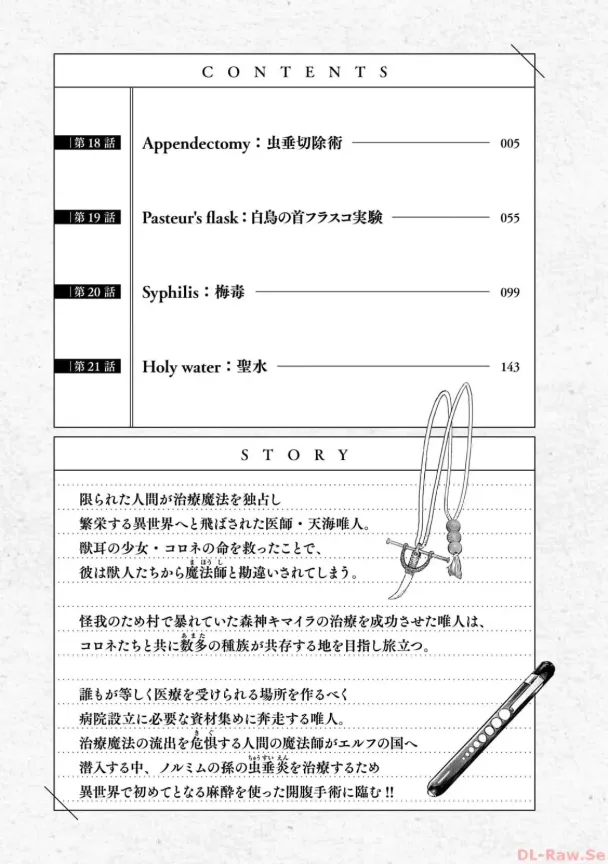 CONTENTS
第18話 Appendectomy：虫垂切除術 005
第19話 Pasteur's flask：白鳥の首フラスコ実験 055
第20話 Syphilis：梅毒 099
第21話 Holy water：聖水 143
STORY
限られた人間が治療魔法を独占し
繁栄する異世界へと飛ばされた医師・天海唯人。
獣耳の少女・コロネの命を救ったことで、
彼は獣人たちから魔法師と勘違いされてしまう。
怪我のため村で暴れていた森神キマイラの治療を成功させた唯人は、
コロネたちと共に数多の種族が共存する地を目指し旅立つ。
誰もが等しく医療を受けられる場所を作るべく
病院設立に必要な資材集めに奔走する唯人。
治療魔法の流出を危惧する人間の魔法師がエルフの国へ
潜入する中、ノルミムの孫の虫垂炎を治療するため
異世界で初めてとなる麻酔を使った開腹手術に臨む!!
DL-Raw.Se